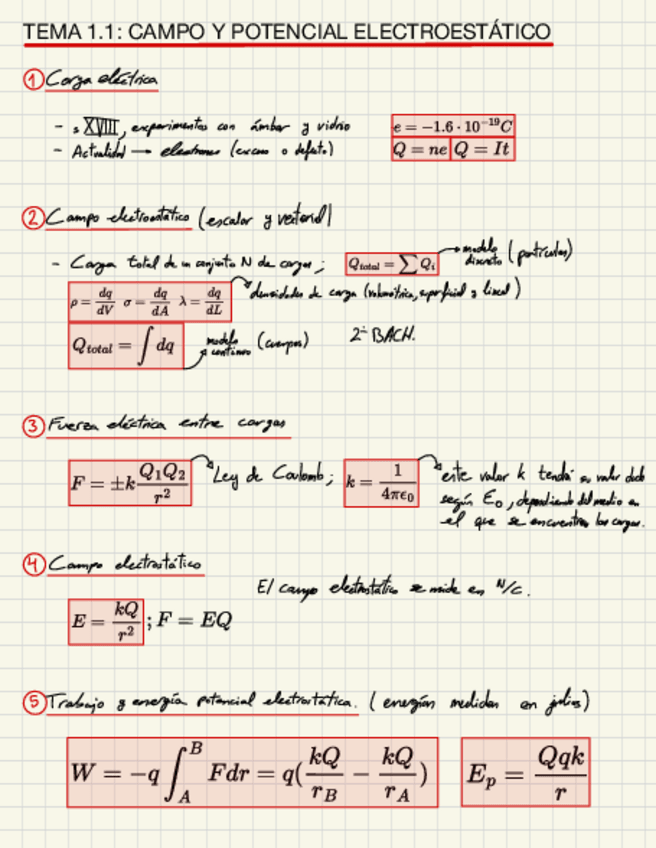 TEMA 1.1: CAMPO Y POTENCIAL ELECTROESTÁTICO
① Carga eléctrica
- s XVIII, experimentos con ámbar y vidrio
e = −1.6 · 10⁻¹⁹C
- Actualidad → electrones (exceso o defecto)
Q = ne | Q = It
② Campo electroestático (escalar y vectorial)
- Carga total de un conjunto N de cargas;
Q_total = ∑ Q_i
modelo discreto (partículas)
ρ = dq/dV σ = dq/dA λ = dq/dL
densidades de carga (volumétrica, superficial y lineal)
Q_total = ∫ dq
modelo continuo (cuerpos)
2º BACH.
③ Fuerza eléctrica entre cargas
F = ±k Q₁Q₂/r²
Ley de Coulomb;
k = 1/4πϵ₀
este valor k tendrá su valor dado
según E₀, dependiendo del medio en
el que se encuentren las cargas.
④ Campo electrostático
El campo electrostático se mide en N/C.
E = kQ/r² ; F = EQ
⑤ Trabajo y energía potencial electrostática. (energías medidas en julios)
W = −q ∫_A^B Fdr = q(kQ/r_B − kQ/r_A)
E_p = Qqk/r